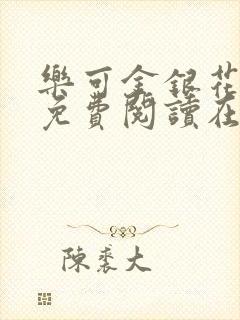 樂可金銀花
免費閱讀在
陳裘大